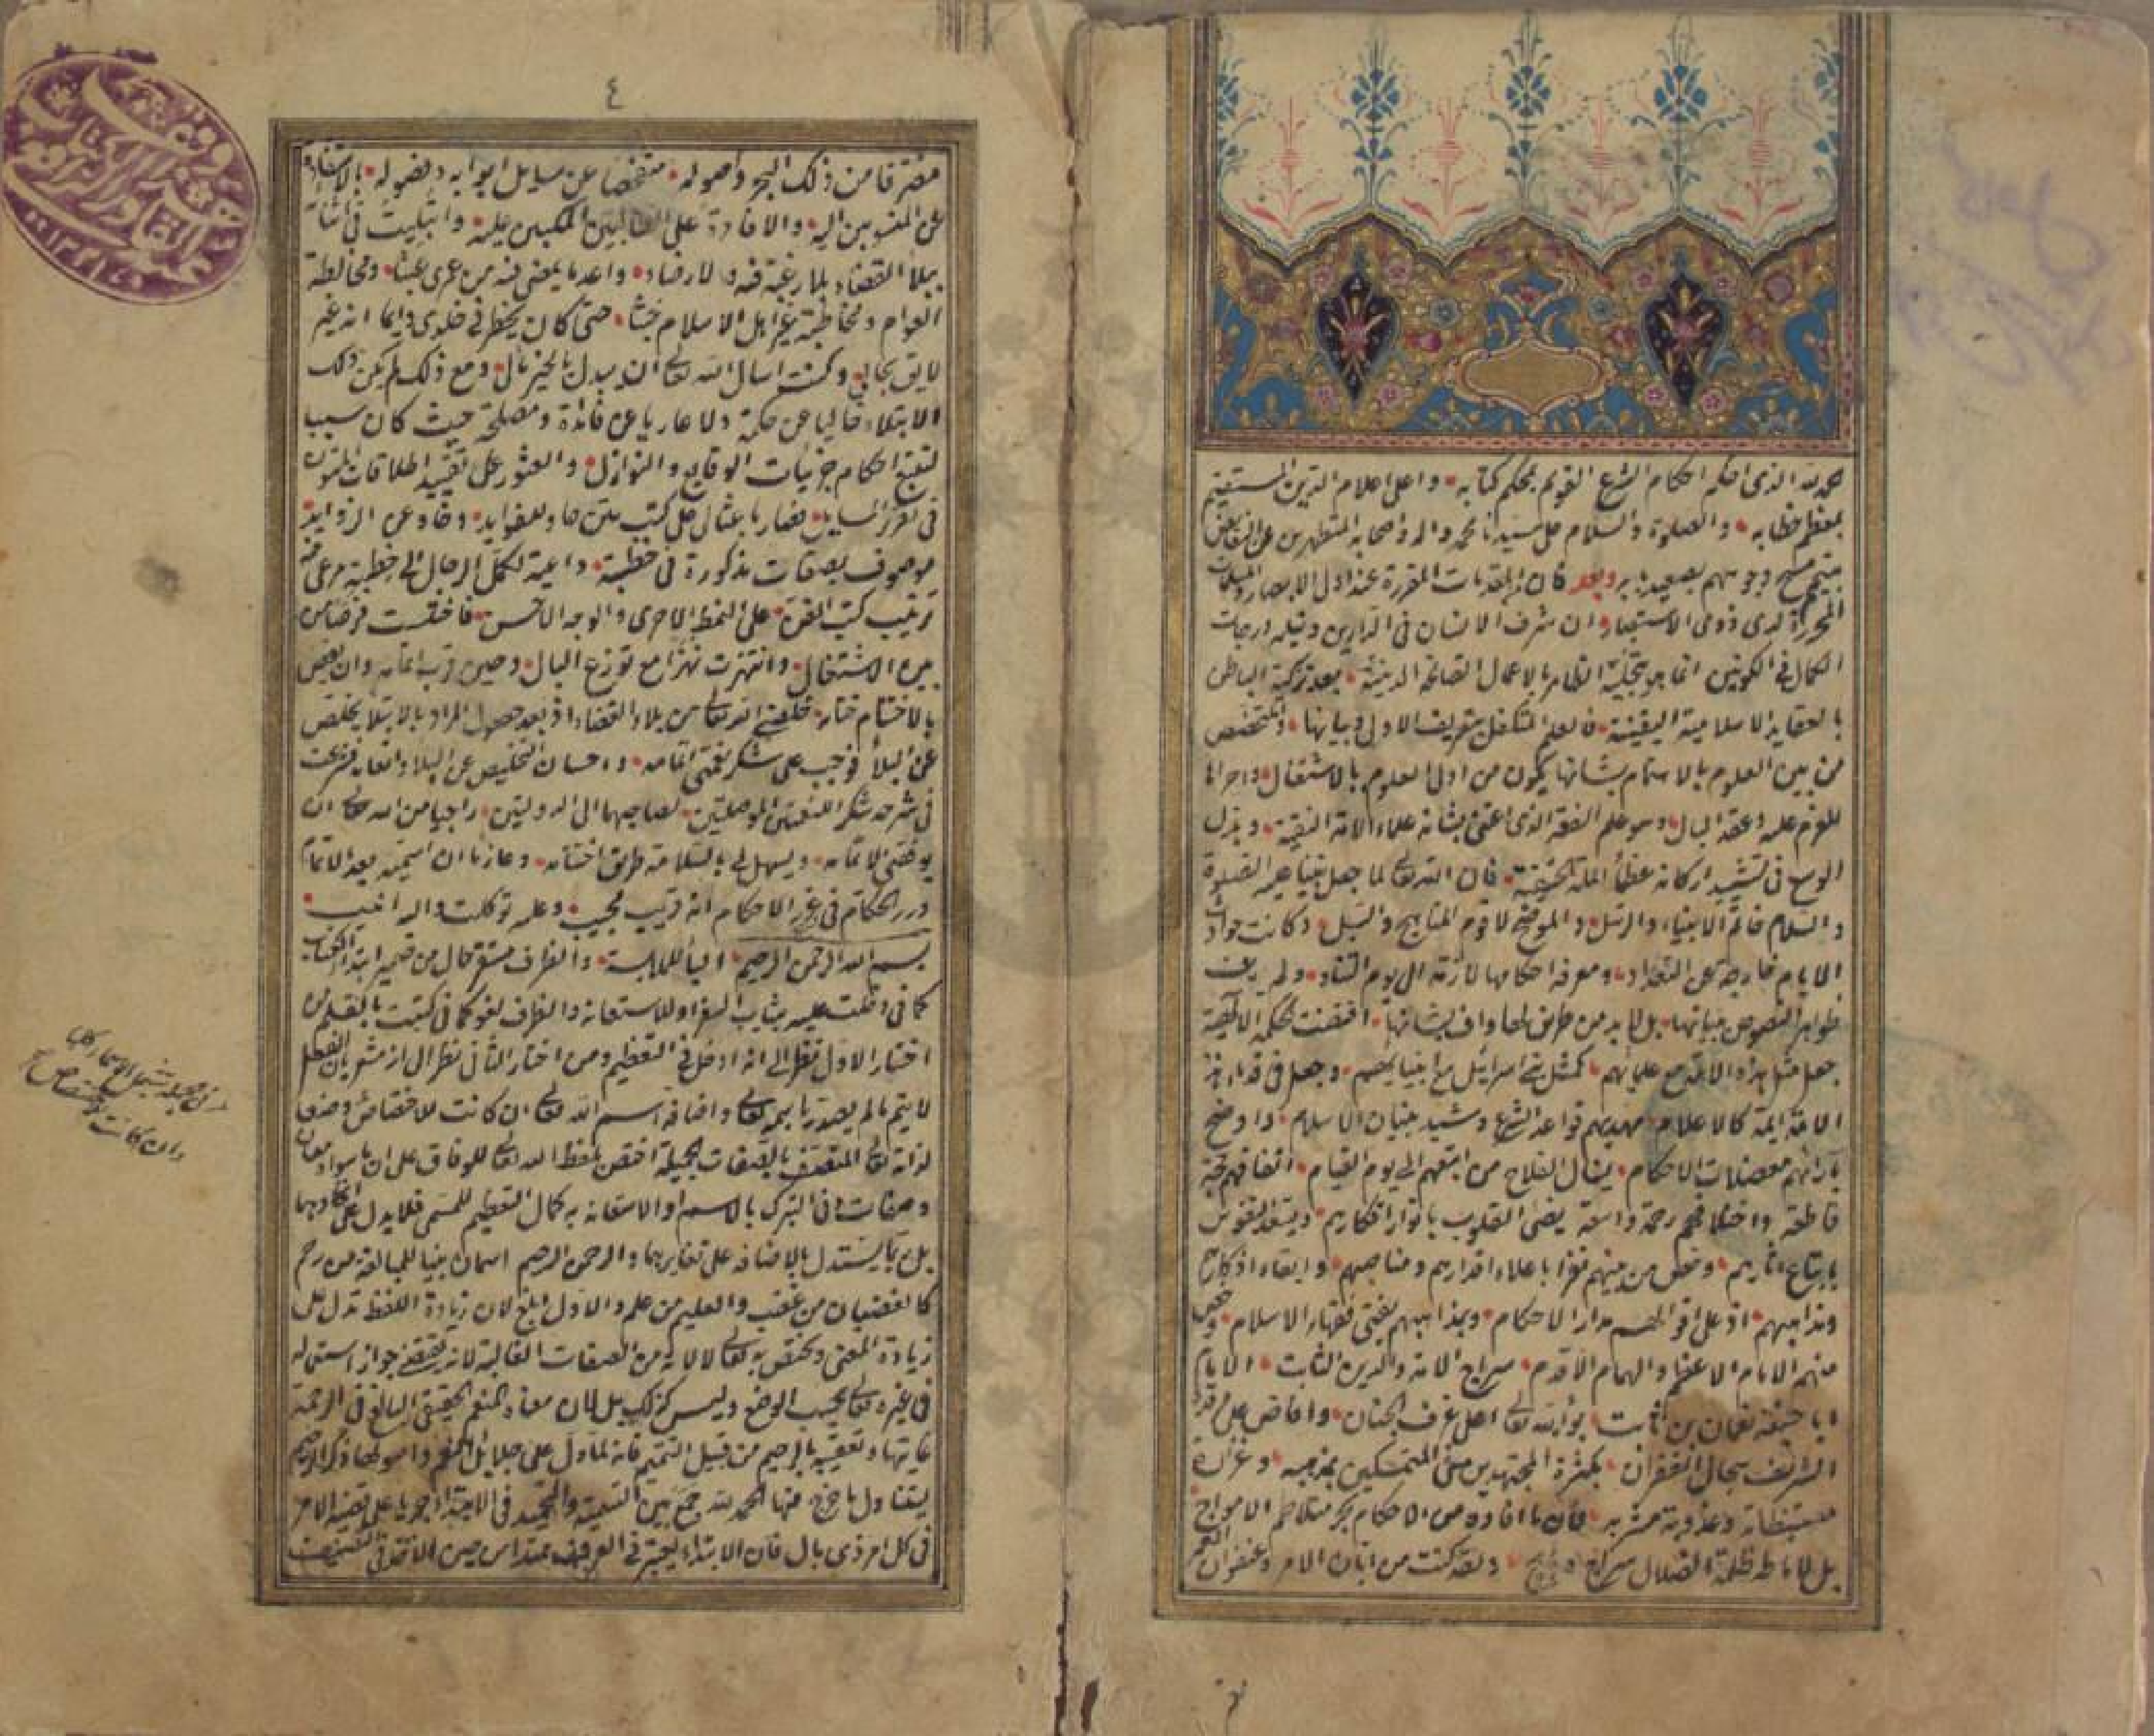 الحمد لله الذى احكم احكام الشرع القويم بمحكم كتابه واعلى اعلام الدين المستقيم
بمعظم خطابه والصلوة والسلام على سيدنا محمد واله واصحابه المتطهرين عن النقايص
بتيممهم مسح وجوههم بصعيد بابه وبعد فان من المقدمات المقررة عند اولى الابصار والمسلمات
المحررة لدى ذوى الاستبصار ان شرف الانسان فى الدارين ونيله درجات
الكمال فى الكونين انما هو بتحلية الظاهر بالاعمال الصالحة الدينية بعد تزكية الباطن
بالعقايد الاسلامية اليقينية فالعلم المتكفل بتعريف الاولى وبيانها والمختص
من بين العلوم بالاهتمام بشانها يكون من اولى العلوم بالاشتغال واحراها
للعزم عليه وعقد البال وهو علم الفقه الذى اعتنى بشانه علماء الامة النقية وبذل
الوسع فى تشييد اركانه عظماء الملة الحنيفية فان الله تعالى لما جعل نبينا عليه الصلوة
والسلام خاتم الانبياء والرسل والموضح لاقوم المناهج والسبل وكانت حوادث
الايام خارجة عن التعداد ومعرفة احكامها لازمة الى يوم التناد ولم يف
ظواهر النصوص ببيانها بل لا بد من طريق لها واف بشانها اقتضت الحكمة الالهية
جعل مثل هذه الامة مع علمائهم كمثل بنى اسرائيل مع انبيائهم وجعل فى قدماء هذه
الامة ائمة كالاعلام مهد بهم قواعد الشرع وشيد بنيان الاسلام واوضح
بآرائهم معضلات الاحكام ينال الفلاح من اتبعهم الى يوم القيام اتفاقهم حجة
قاطعة واختلافهم رحمة واسعة يضئ القلوب بانوار افكارهم ويسعد النفوس
باتباع اثارهم وخص من بينهم نفرا باعلاء اقدارهم ومناصبهم وابقاء اذكارهم
ومذاهبهم اذ على اقوالهم مدار الاحكام وبمذاهبهم يفتى فقهاء الاسلام وخص
منهم الامام الاعظم والهمام الاقدم سراج الامة والدين الثابت الامام
ابا حنيفة نعمان بن ثابت بوأه الله تعالى اعلى غرف الجنان وافاض على مرقده
الشريف سجال الغفران بكثرة المجتهدين من المتمسكين بمذهبه وغزارة
مستنبطاته وعذوبة مشربه فان ما افاده من الاحكام بحر متلاطم الامواج
بل لاماطة ظلمة الضلال سراج وهاج ولقد كنت من ابان الامر وعنفوان العمر
٤
مغترفا من ذلك البحر واصوله متفحصا عن مسايل ابوابه وفصوله بالاستفادة
عن المنسوبين اليه والافادة على الطالبين المكبين عليه وابتليت فى اثنائه
ببلاء القضاء بلا رغبة فيه ولا رضاء واعد ما يمضى فيه من عمرى عبثا ومخالطة
العوام ومخاطبة غير اهل الاسلام خبثا حتى كان يخطر فى خلدى دايما انه غير
لايق بحالى وكنت اسال الله تعالى ان يبدل بالخير مآلى ومع ذلك لم يكن ذلك
الابتلاء خاليا عن حكمة ولا عاريا عن فائدة ومصلحة حيث كان سبب
لتتبع احكام جزئيات الوقايع والنوازل والعثور على تقييد اطلاقات المتون
فى تقرير المسايل فصار باعثا لى على كتب متن حاو للفوايد وخاو عن الزوايد
موصوف بصفات مذكورة فى خطبته داعية لكمل الرجال الى خطبته مرعى فيه
ترتيب كتب الفن على النمط الاحرى والوجه الاحسن فاختلست فرصا من
بين الاشتغال وانتهزت نهزا مع توزع البال وحين قرب اتمامه وان يفض
بالاختتام ختامه خلصنى الله تعالى من بلاء القضاء اذ بعد حصول المراد بالابتلاء يخلص
عن البلاء فوجب على شكر نعمتى اتمامه واحسان التخليص عن البلاء وانعامه فشرعت
فى شرحه شكرا للنعمتين الموصلتين لصاحبهما الى الدولتين راجيا من الله تعالى ان
يوفقنى لاتمامه ويسهل لى بالسلامة طريق اختتامه وعازما ان اسميه بعد الاتمام
درر الحكام فى غرر الاحكام انه قريب مجيب وعليه توكلت واليه انيب
بسم الله الرحمن الرحيم الباء للملابسة والظرف مستقر حال من ضمير ابتدأ الكتاب
كما فى دخلت عليه بثياب السفر او للاستعانة والظرف لغو كما فى كتبت بالقلم من
اختار الاول نظر الى انه ادخل فى التعظيم ومن اختار الثانى نظر الى انه مشعر بان الفعل
لا يتم ما لم يصدر باسمه تعالى واضافة اسم الله تعالى ان كانت للاختصاص وضعا
لذاته تعالى المتصف بالصفات الجميلة اختص بلفظ الله تعالى للوفاق على ان ما سواه معان
وصفات وفى التبرك بالاسم او الاستعانة به كمال التعظيم للمسمى فلا يدل على اتحادهما
بل ربما يستدل بالاضافة على تغايرهما والرحمن الرحيم اسمان بنيا للمبالغة من رحم
كالغضبان من غضب والعليم من علم والاول ابلغ لان زيادة اللفظ تدل على
زيادة المعنى ومختص به تعالى لا لانه من الصفات الغالبة لانه يقتضى جواز استعماله
فى غيره تعالى بحسب الوضع وليس كذلك بل لان معناه المنعم الحقيقى البالغ فى الرحمة
غايتها وتعقيبه بالرحيم من قبيل التتميم فانه لما دل على جلايل النعم واصولها ذكر الرحيم
ليتناول ما خرج منها الحمد لله جمع بين التسمية والتحميد فى الابتداء جريا على قضية الامر
فى كل امر ذى بال فان الابتداء يعتبر فى العرف ممتدا من حين الاخذ فى التصنيف
وان كانت